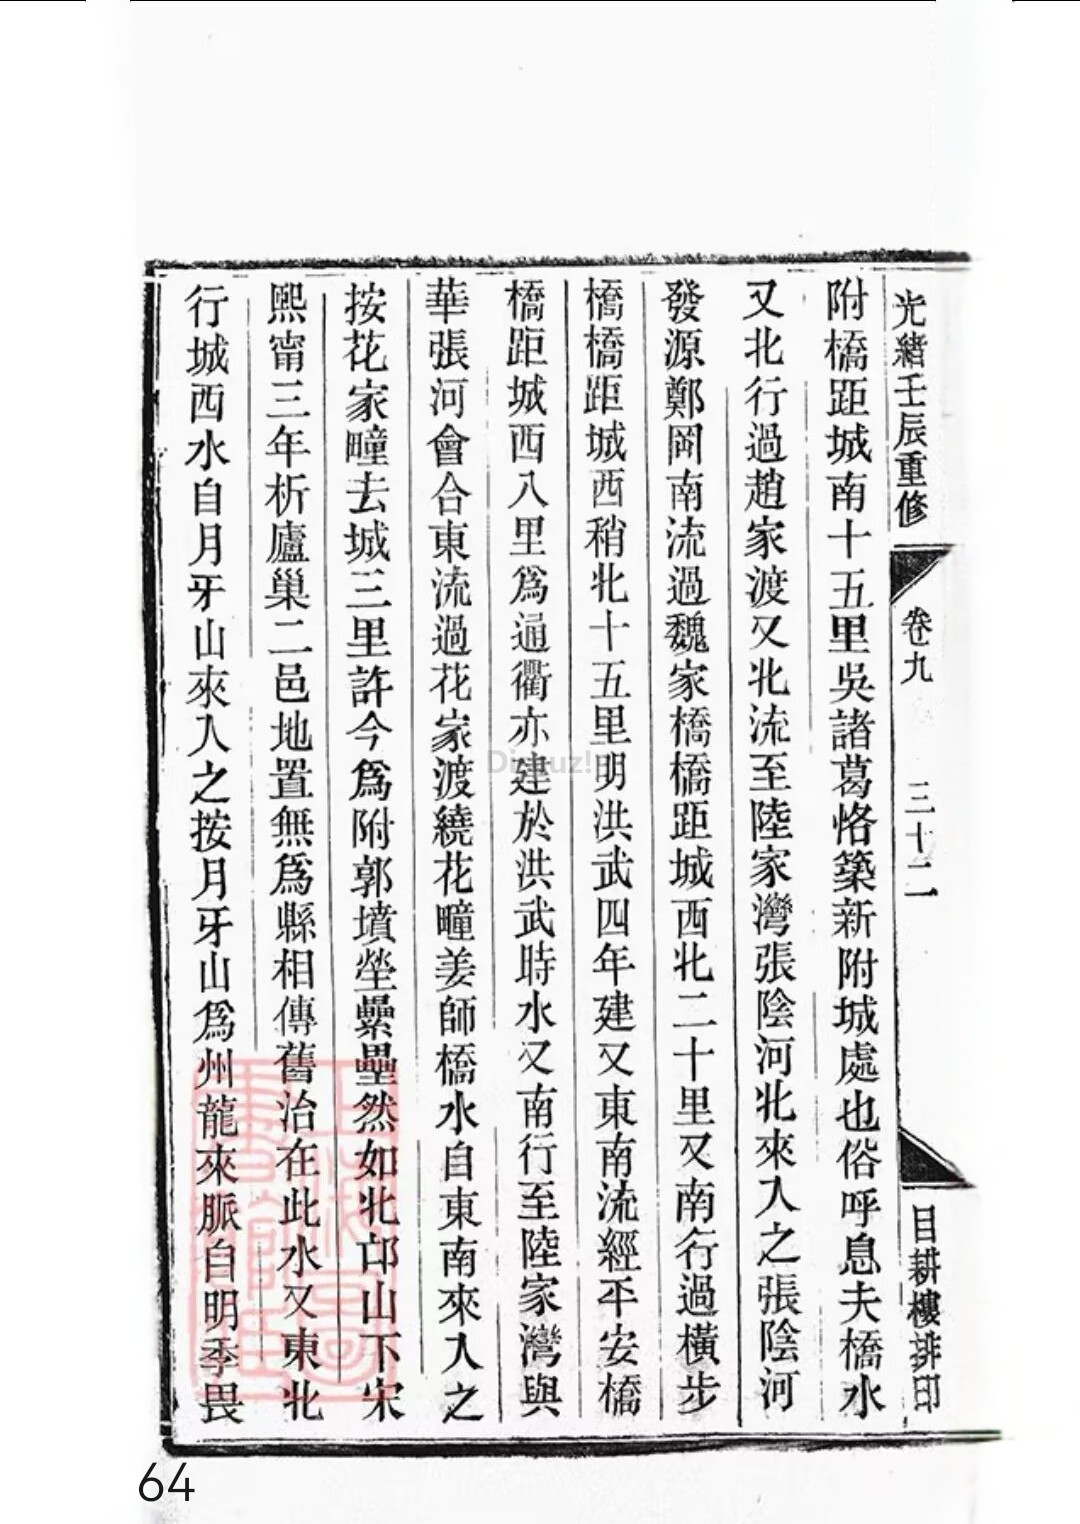 光緒壬辰重修 卷九 三十二 目耕樓排印
附橋距城南十五里吳諸葛恪築新附城處也俗呼息夫橋水
又北行過趙家渡又北流至陸家灣張陰河北來入之張陰河
發源鄭岡南流過魏家橋橋距城西北二十里又南行過橫步
橋橋距城西稍北十五里明洪武四年建又東南流經平安橋
橋距城西八里爲通衢亦建於洪武時水又南行至陸家灣與
華張河會合東流過花家渡繞花疃姜師橋水自東南來入之
按花家疃去城三里許今爲附郭墳塋纍壘然如北邙山下宋
熙甯三年析廬巢二邑地置無爲縣相傳舊治在此水又東北
行城西水自月牙山來入之按月牙山爲州龍來脈自明季畏
上海圖書館藏
Discuz!
64